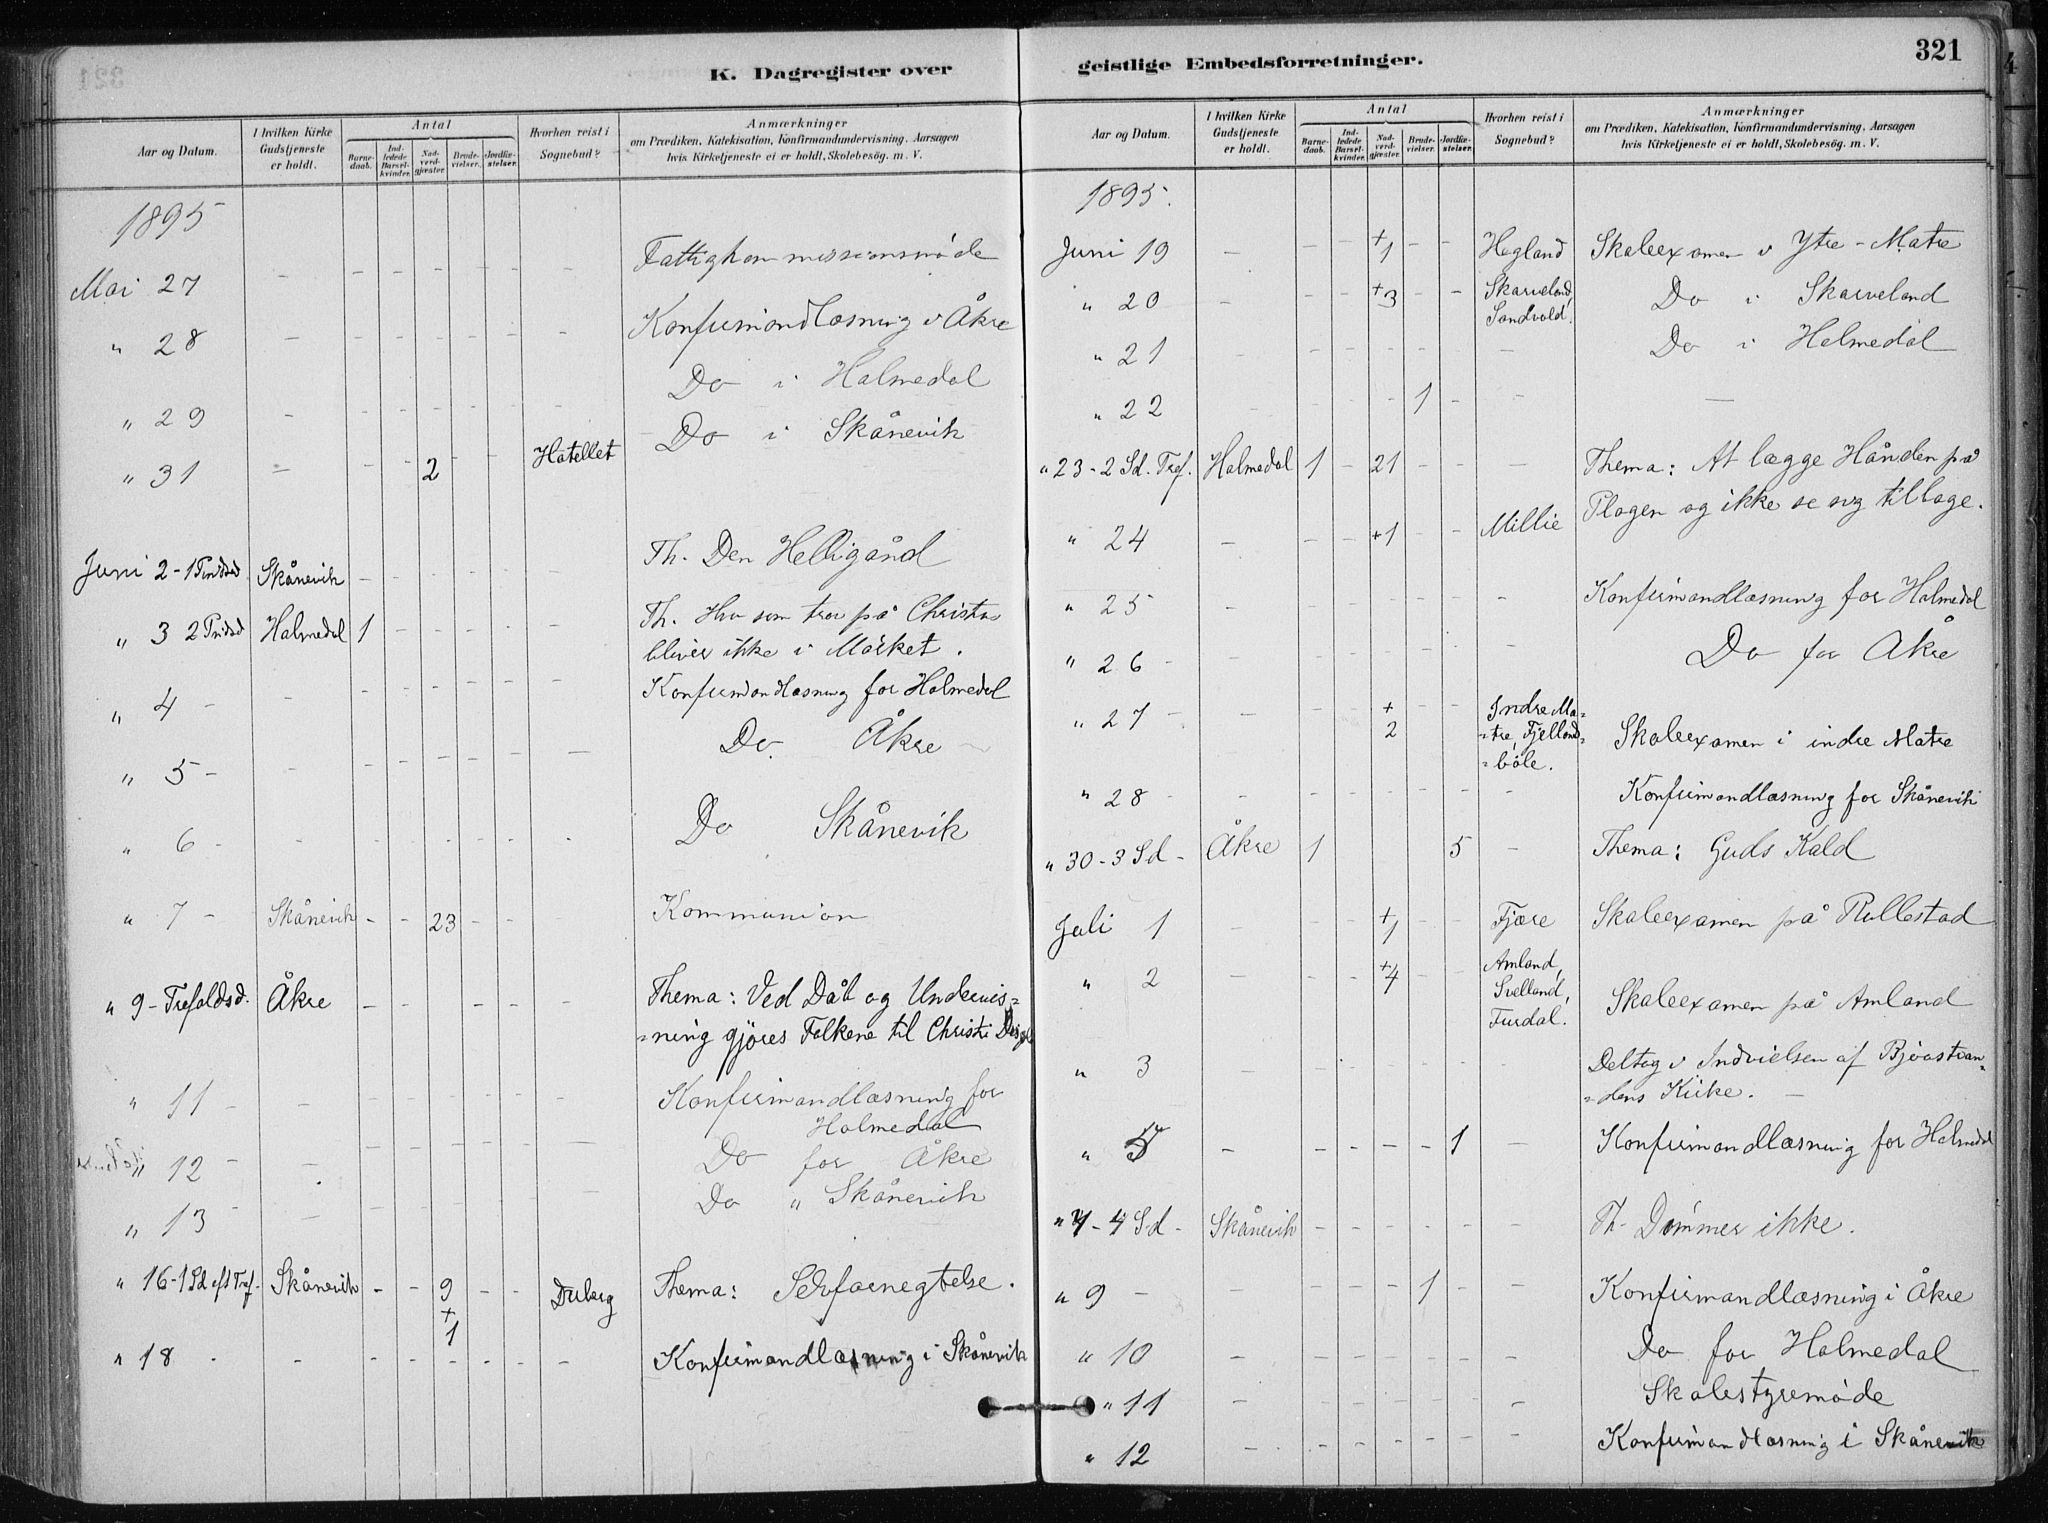 321
K. Dagregister over geistlige Embedsforretninger.
Aar og Datum.
I hvilken Kirke Gudstjeneste er holdt.
Antal
Barne-daab.
Ind-ledede Barsel-kvinder.
Nad-verd-gjæster.
Brude-vielser.
Jordfæ-stelser.
Hvorhen reist i Sognebud?
Anmærkninger
om Prædiken, Katekisation, Konfirmandundervisning, Aarsagen
hvis Kirketjeneste ei er holdt, Skolebesög. m. V.
1895
Mai 27 - - - - - - - Fattigkommissionsmöde
" 28 - - - - - - - Konfirmandlæsning i Åkre
" 29 - - - - - - - Do i Holmedal
" 31 - - - 2 - - Hotellet Do i Skånevik
Juni 2 - 1 Pindsd Skånevik - - - - - - Th. Den Helligånd
" 3 2 Pindsd Holmedal 1 - - - - - Th. Hvo som tror på Christus
bliver ikke i Mörket.
" 4 - - - - - - - - Konfirmandlæsning for Holmedal
" 5 - - - - - - - - Do Åkre
" 6 - - - - - - - - Do Skånevik
" 7 - Skånevik - - 23 - - Kommunion
" 9 - Trefoldsd. Åkre - - - - - - Thema: Ved Dåb og Undervis=
=ning gjöres Folkene til Christi
" 11 - - - - - - - Konfirmandlæsning for
Holmedal
" 12 - - - - - - - - Do for Åkre
" 13 - - - - - - - - Do " Skånevik
" 16 - 1 Sd eft Tref. Skånevik - - 9 + 1 - - Thema: Selvfornegtelse.
" 18 - - - - - - - Konfirmandlæsning i Skånevik
Aar og Datum.
I hvilken Kirke Gudstjeneste er holdt.
Antal
Barne-daab.
Ind-ledede Barsel-kvinder.
Nad-verd-gjæster.
Brude-vielser.
Jordfæ-stelser.
Hvorhen reist i Sognebud?
Anmærkninger
om Prædiken, Katekisation, Konfirmandundervisning, Aarsagen
hvis Kirketjeneste ei er holdt, Skolebesög. m. V.
1895.
Juni 19 - - - +1 - - Hogland Skoleexamen i Ytre-Matre
" 20 - - - +3 - - Skarveland, Sandvold. Do i Skarveland
" 21 - - - - - - - Do i Holmedal
" 22 - - - - 1 - - -
" 23 - 2 Sd. Tref. Holmedal 1 - 21 - - - Thema: At lægge Hånden på
Plogen og ikke se sig tilbage.
" 24 - - - +1 - - Millie
" 25 - - - - - - - Konfirmandlæsning for Holmedal
" 26 - - - - - - - Do for Åkre
" 27 - - - - +2 - - Indre Ma=
=tre, Fjelland=
=böle. Skoleexamen i indre Matre
" 28 - - - - - - - - Konfirmandlæsning for Skånevik
" 30 - 3 Sd - Åkre 1 5 - Thema: Guds Kald
Juli 1 - - - +1 - - Fjære Skoleexamen på Rullestad
" 2 - - - +4 - - Amland,
Svelland,
Furdal. Skoleexamen på Amland
" 3 - - - - - - - Deltog i Indvielsen af Bjoastran=
=dens Kirke. -
" 5 - - - - - 1 - Konfirmandlæsning for Holmedal
" 7 - 4 Sd - Skånevik - - - - - - Th- Dömmer ikke.
" 9 - - - - - 1 - - Konfirmandlæsning i Åkre
" 10 - - - - - - - Do for Holmedal
" 11 - - - - - - - Skolestyremöde
" 12 - - - - - - - Konfirmandlæsning i Skånevik